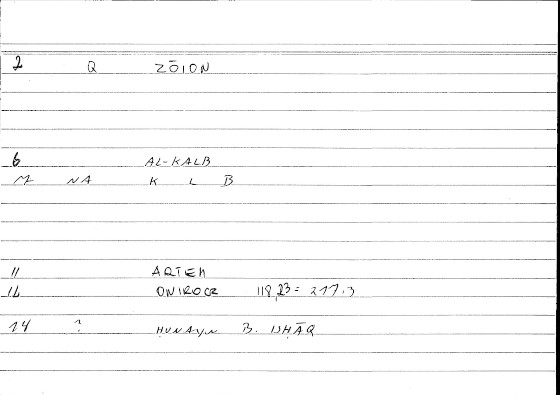 2 Q ZŌION
6 AL-KALB
M NA K L B
11 ARTEM
12 ONIROCR 118,23 = 217.3
14 ? ḤUNAYN B. ISḤĀQ